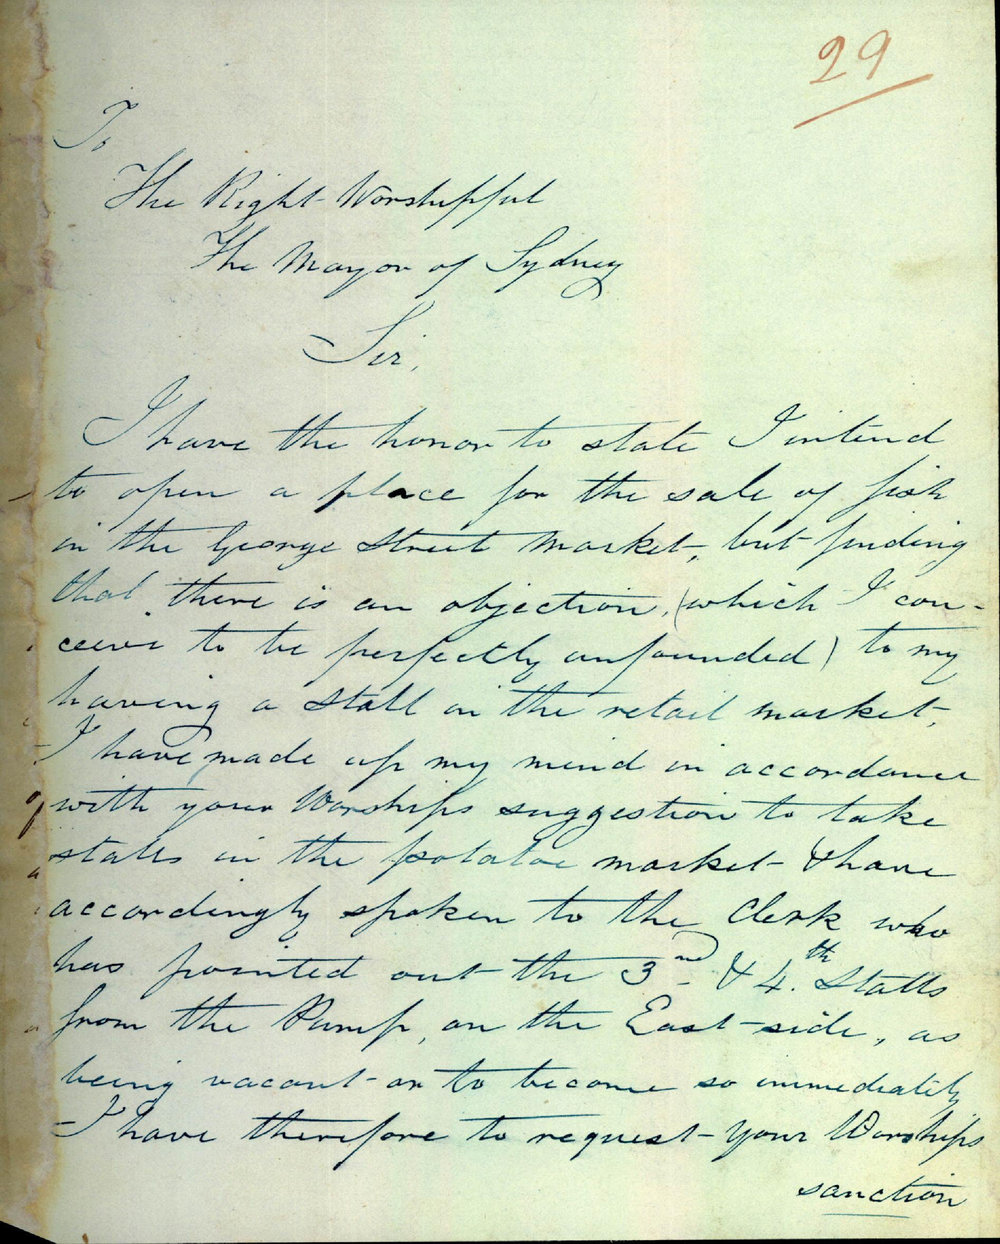 29
To
The Right Worshipful
The Mayor of Sydney
Sir,
I have the honor to state I intend
to open a place for the sale of fish
in the George Street Market, but finding
that there is an objection, (which I con-
ceive to be perfectly unfounded) to my
having a Stall in the retail market,
I have made up my mind in accordance
with your Worships suggestion to take
stalls in the potatoe market & have
accordingly spoken to the Clerk who
has pointed out the 3nd & 4.th Stalls
from the Pump, on the East side, as
being vacant or to become so immediately
I have therefore to request your Worships
sanction